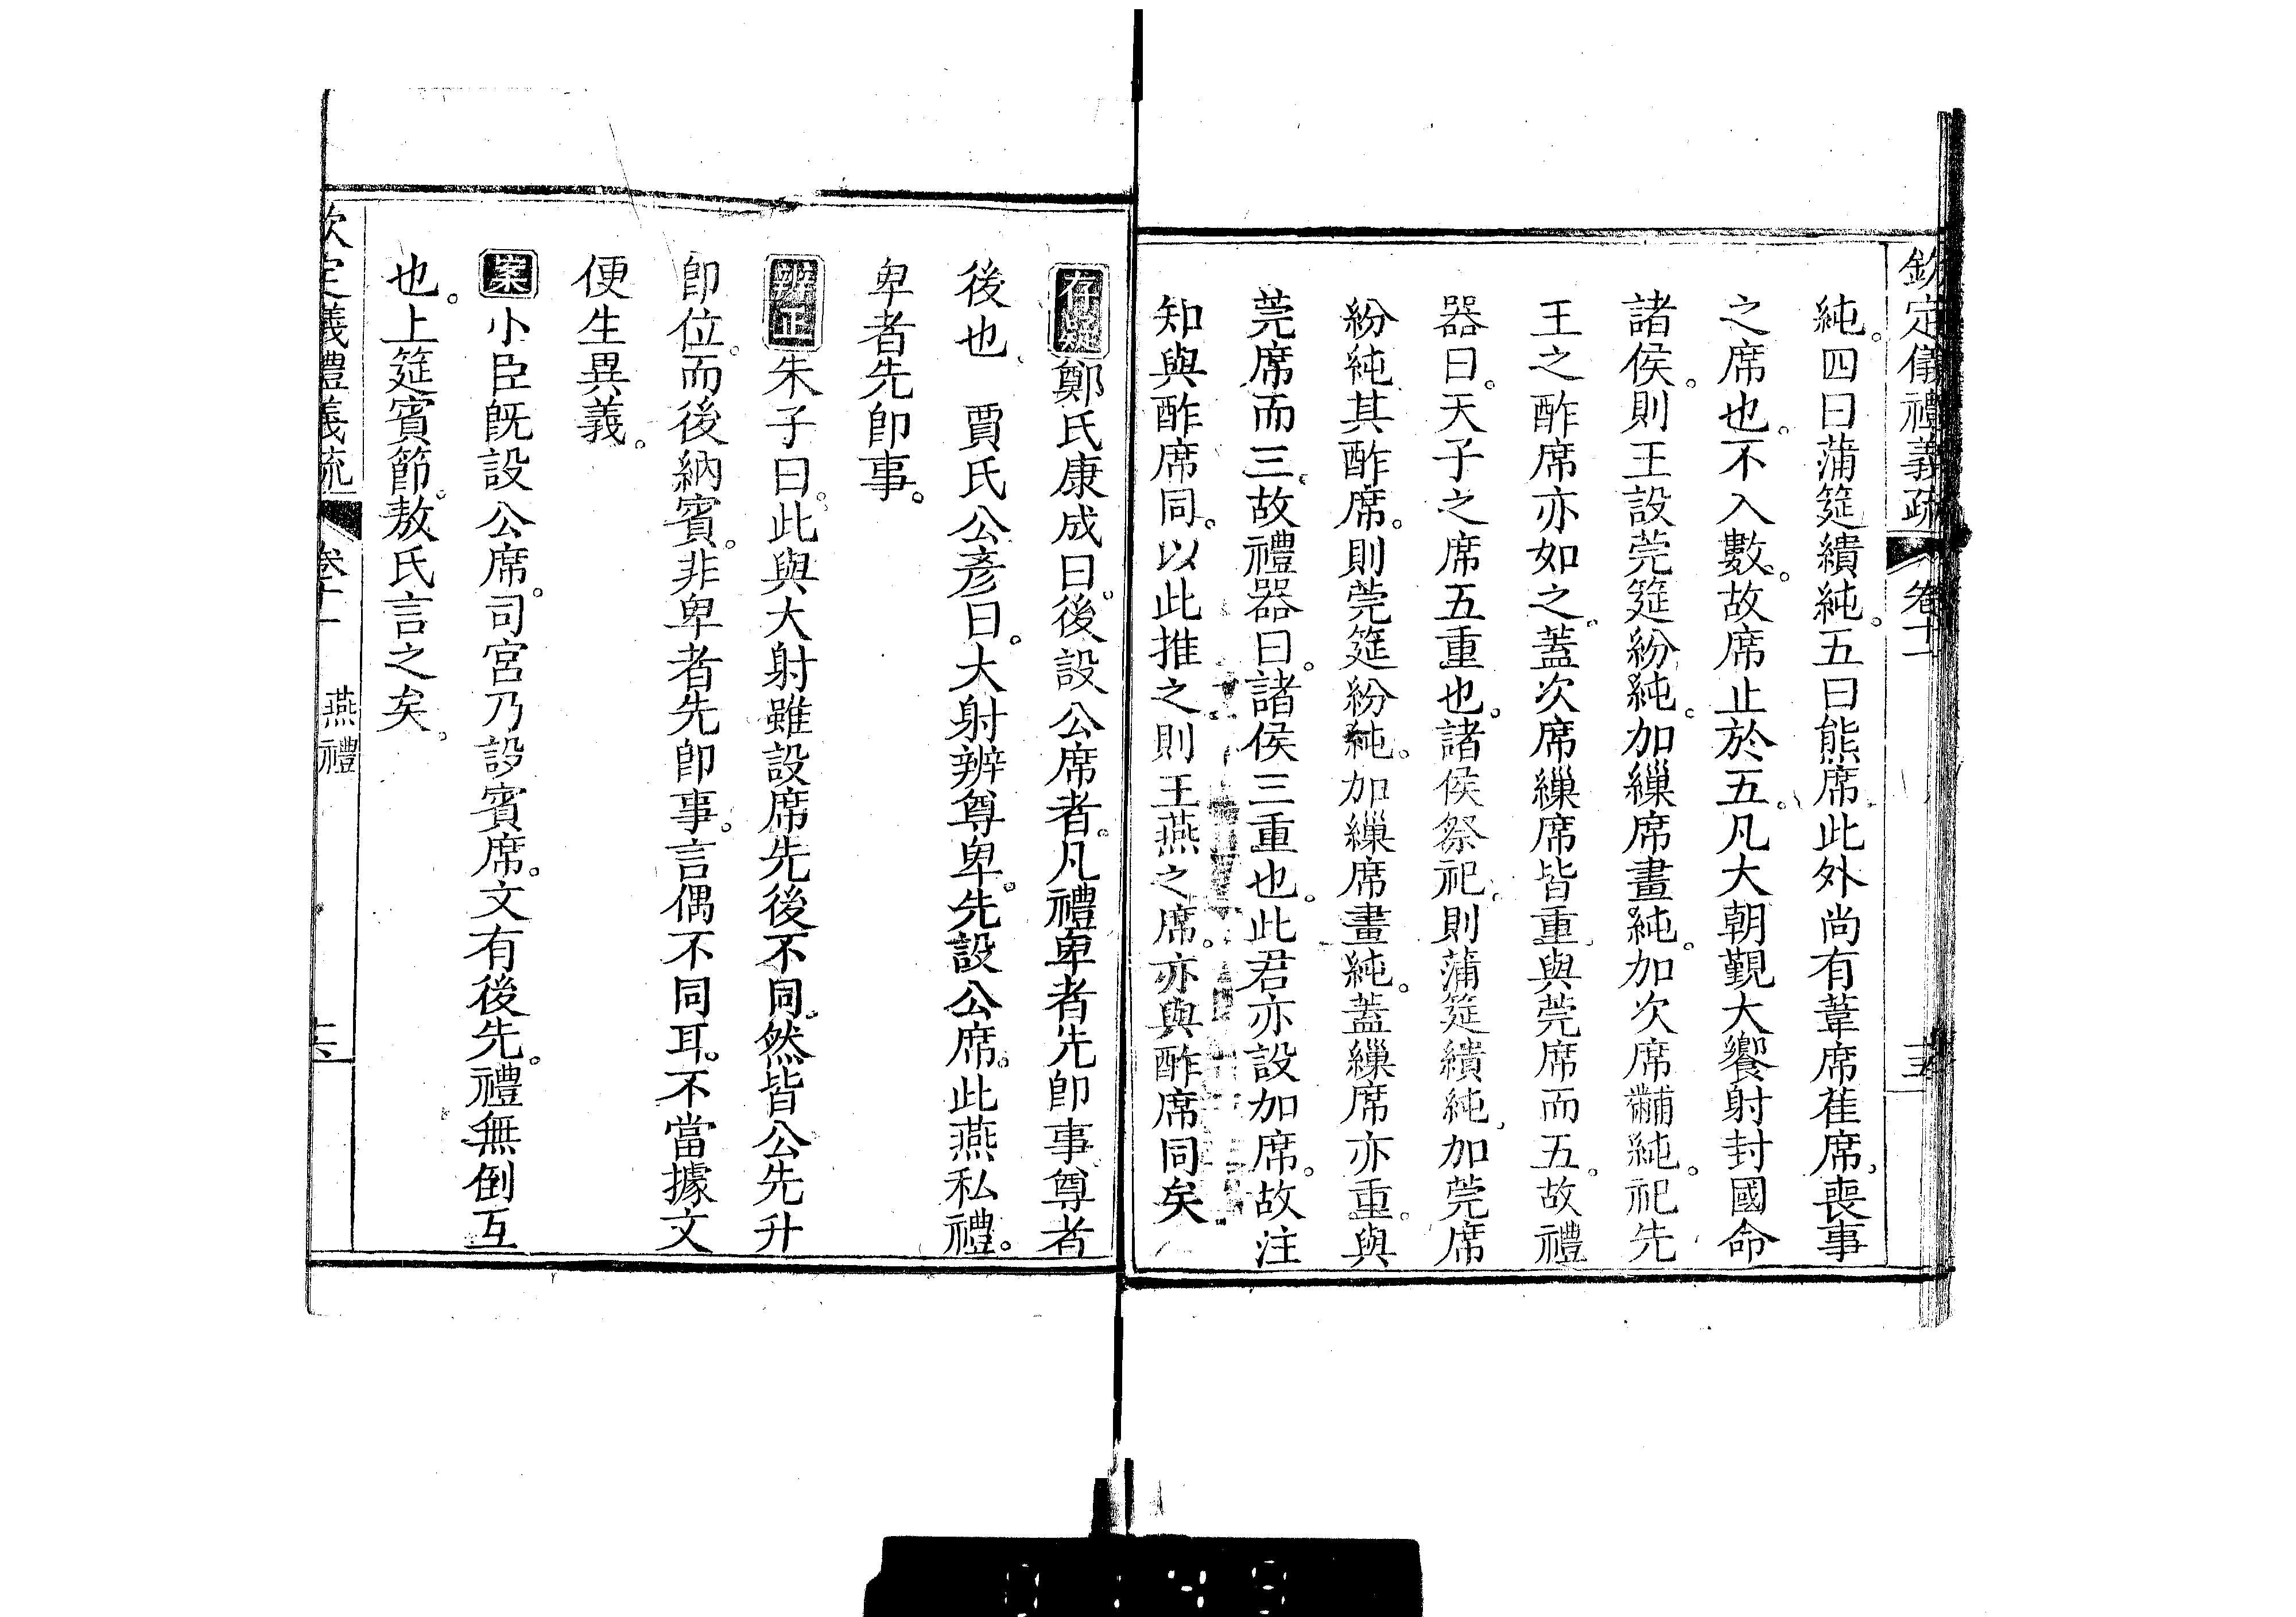 欽定儀禮義疏 卷十一
純。四曰蒲筵繢純。五曰熊席。此外尚有葦席萑席。喪事
之席也。不入數。故席止於五。凡大朝覲大饗射封國命
諸侯。則王設莞筵紛純。加繅席畫純。加次席黼純。祀先
王之酢席亦如之。蓋次席繅席皆重。與莞席而五。故禮
器曰。天子之席五重也。諸侯祭祀。則蒲筵繢純。加莞席
紛純其酢席。則莞筵紛純。加繅席畫純。蓋繅席亦重。與
莞席而三。故禮器曰。諸侯三重也。此君亦設加席。故注
知與酢席同。以此推之則王燕之席。亦與酢席同矣。
存疑鄭氏康成曰。後設公席者。凡禮卑者先即事。尊者
後也 賈氏公彥曰。大射辨尊卑。先設公席。此燕私禮。
卑者先即事。
辨正朱子曰。此與大射雖設席先後不同。然皆公先升
即位。而後納賓。非卑者先即事。言偶不同耳。不當據文
便生異義。
案小臣既設公席。司宮乃設賓席。文有後先。禮無倒互
也。上筵賓節。敖氏言之矣。
欽定儀禮義疏 卷十一 燕禮